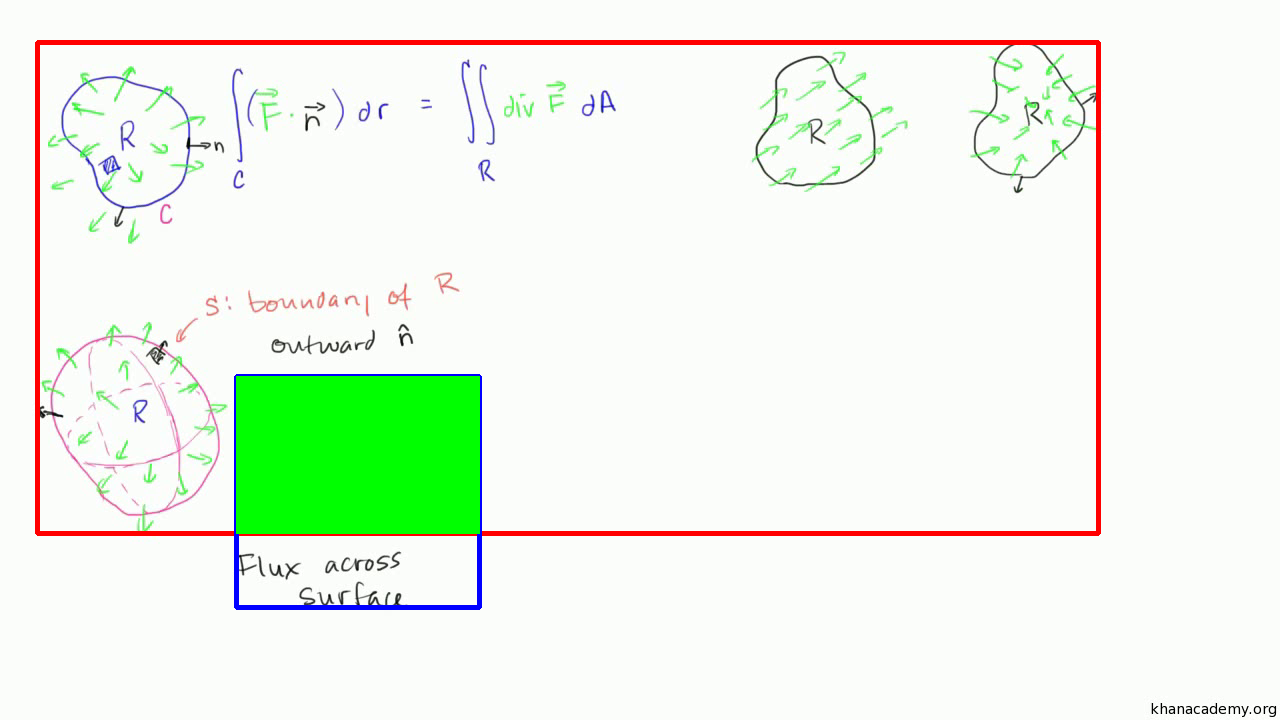 R
n
C
∫ (F⃗ · n⃗) dr = ∬ div F⃗ dA
C
R
R
R
S: boundary of R
outward n̂
R
Flux across
surface
khanacademy.org